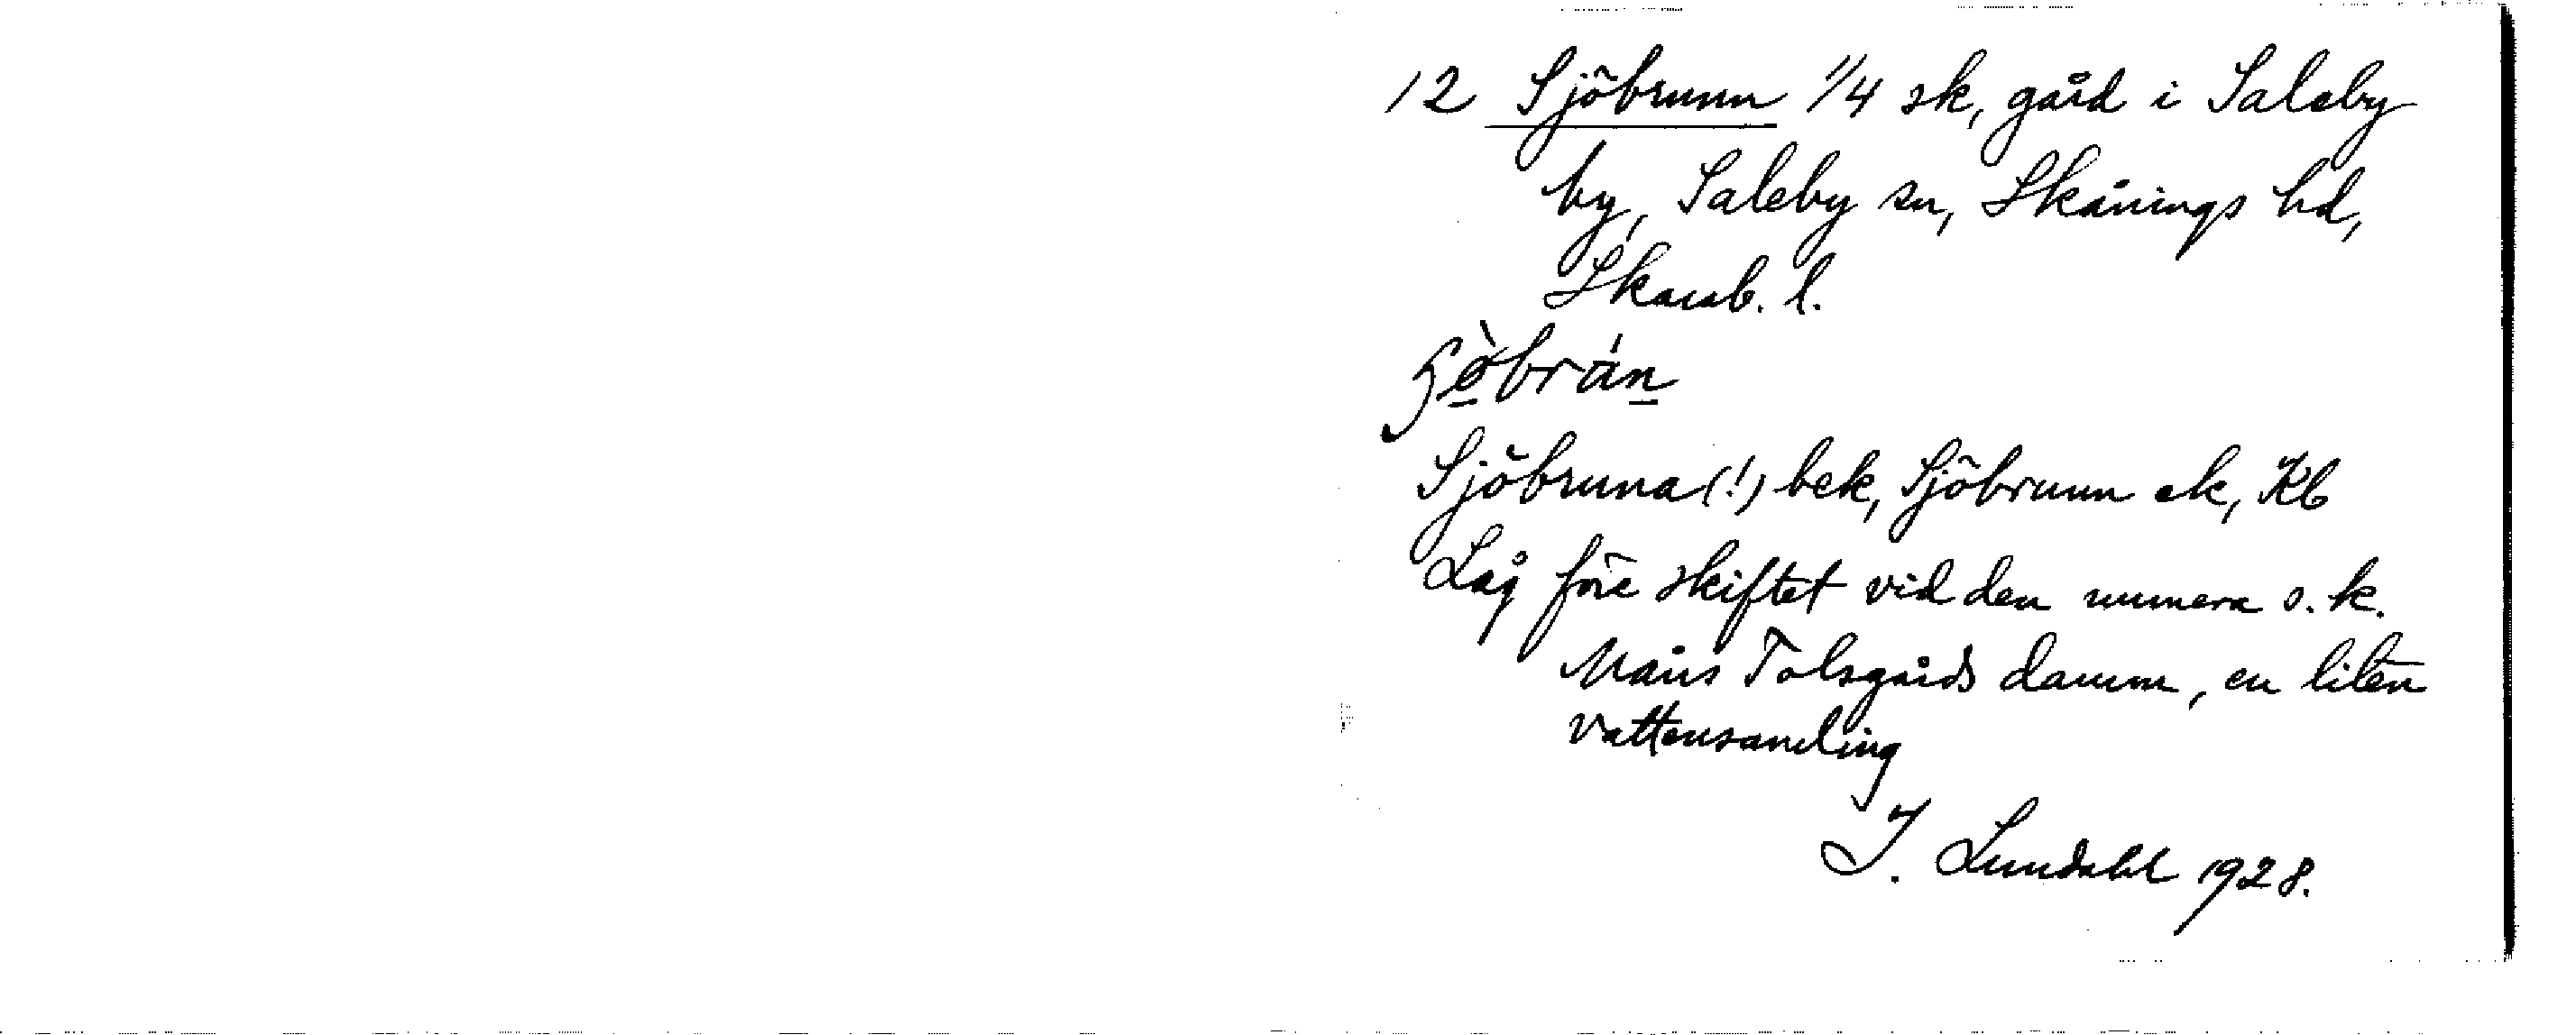 12 Sjöbrunn 1/4 sk, gård i Saleby
by, Saleby sn, Skånings hd,
Skarab. l.
Sjöbruna (!) bek, Sjöbrunn ek, Kb
Låg före skiftet vid den numera s. k.
Måns Tolsgårds damm, en liten
vattensamling
I. Lundahl 1928.